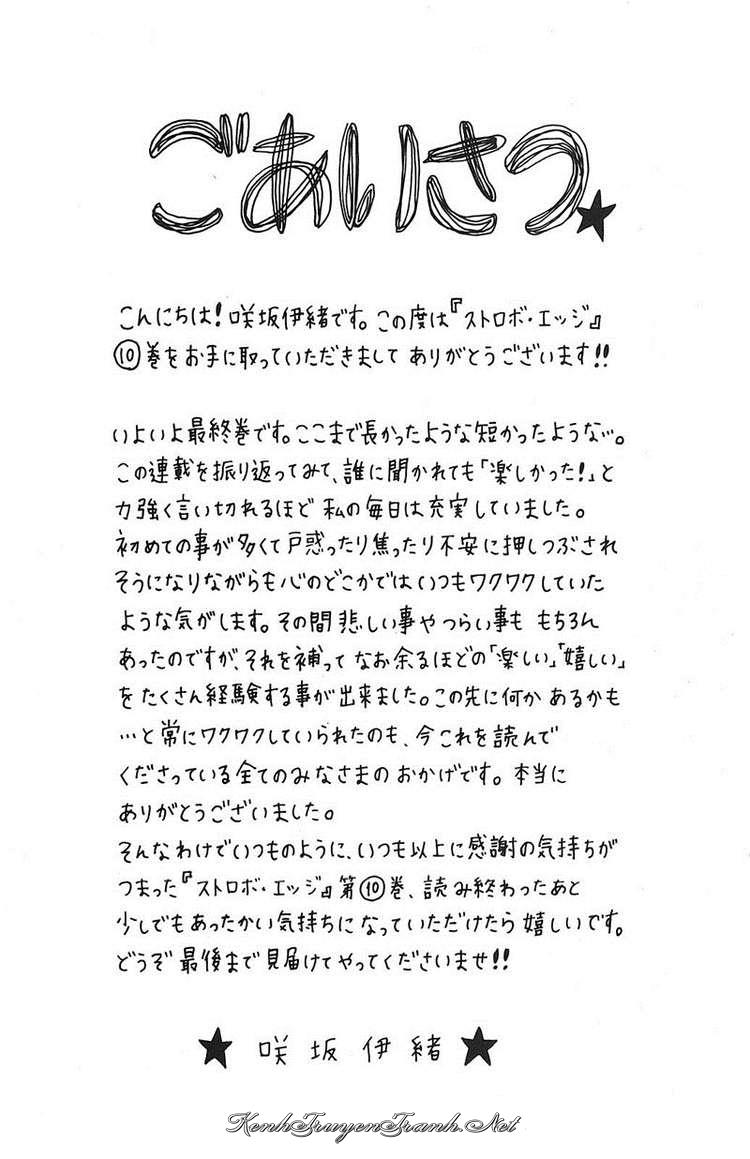 ごあいさつ★
こんにちは!咲坂伊緒です。この度は『ストロボ・エッジ』
⑩巻をお手に取っていただきまして ありがとうございます!!
いよいよ最終巻です。ここまで長かったような短かったような…。
この連載を振り返ってみて、誰に聞かれても「楽しかった!」と
力強く言い切れるほど 私の毎日は充実していました。
初めての事が多くて戸惑ったり焦ったり不安に押しつぶされ
そうになりながらも心のどこかではいつもワクワクしていた
ような気がします。その間悲しい事やつらい事も もちろん
あったのですが、それを補って なお余るほどの「楽しい」「嬉しい」
をたくさん経験する事が出来ました。この先に何か あるかも
…と常にワクワクしていられたのも、今これを読んで
くださっている全てのみなさまの おかげです。本当に
ありがとうございました。
そんなわけでいつものように、いつも以上に感謝の気持ちが
つまった『ストロボ・エッジ』第⑩巻、読み終わったあと
少しでもあったかい気持ちになっていただけたら嬉しいです。
どうぞ最後まで見届けてやってくださいませ!!
★ 咲坂伊緒 ★
KenhTruyenTranh.Net